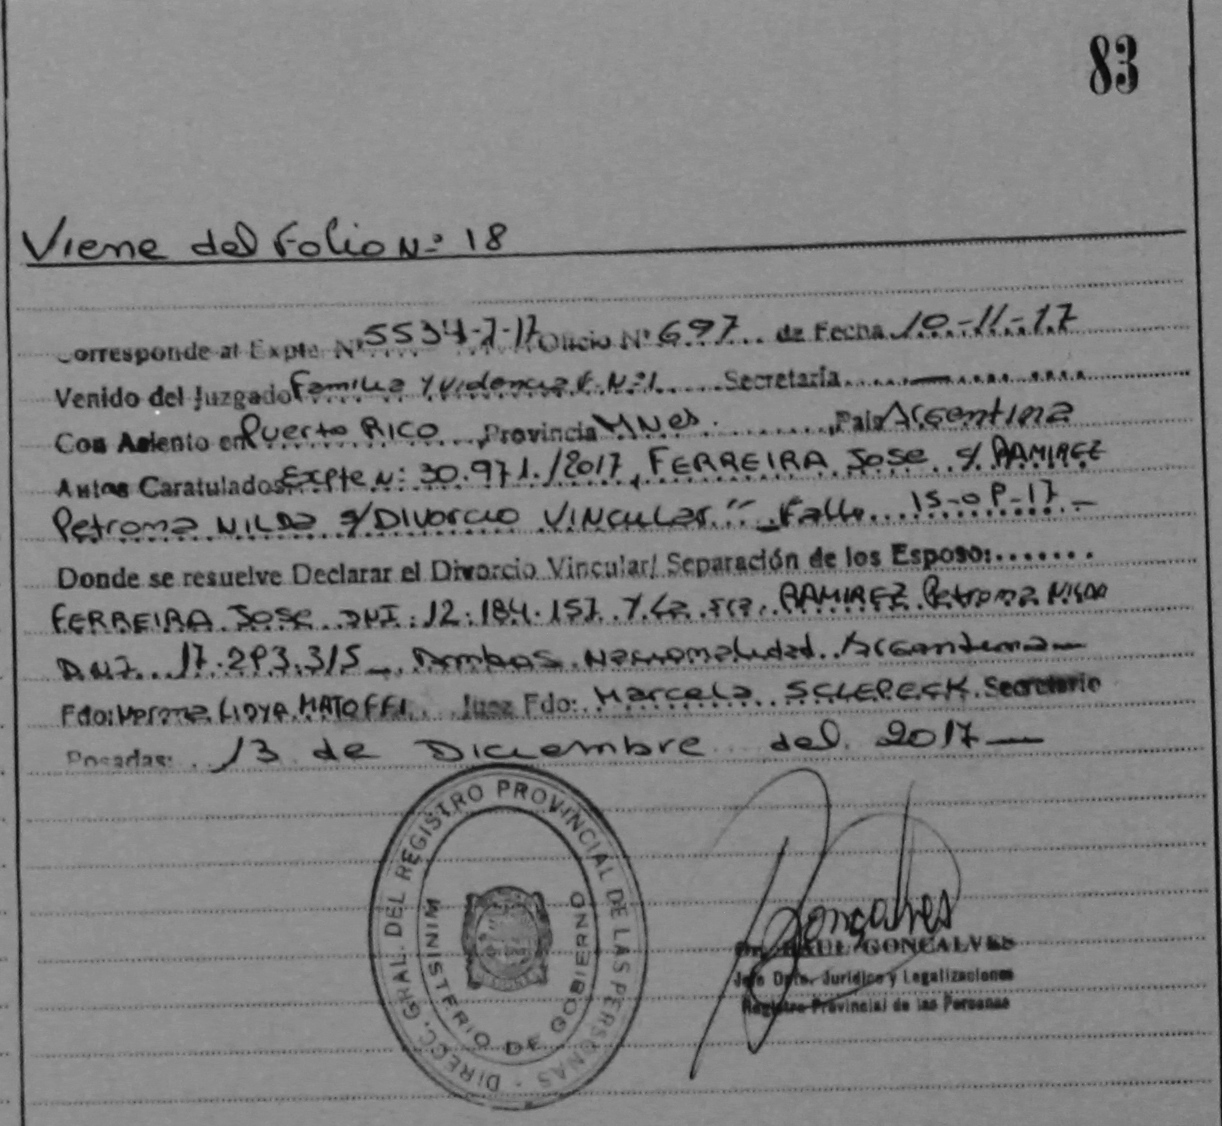 83
Viene del Folio Nº 18
Corresponde al Expte Nº 5534-7-17 Oficio Nº 697 de Fecha 10-11-17
Venido del Juzgado Familia y Violencia F. Nº 1 Secretaría —
Con Asiento en Puerto Rico, Provincia MNES. País Argentina
Autos Caratulados Expte Nº: 30.971./2017, FERREIRA Jose c/ RAMIREZ
Petrona NILDA s/DIVORCIO VINCULAR" Fallo 15-08-17 -
Donde se resuelve Declarar el Divorcio Vincular/ Separación de los Esposo:
FERREIRA Jose DNI: 12.184.157 Y La sra. RAMIREZ Petrona Nilda
D.N.I. 17.293.315 - Ambos Nacionalidad Argentina -
Fdo: LIDYA MATOFFI. Juez Fdo: Marcela Secretario
Posadas: 13 de Diciembre del 2017 —
DIRECC. GRAL. DEL REGISTRO PROVINCIAL DE LAS PERSONAS -
MINISTERIO DE GOBIERNO
Goncalves
Dr. RAUL GONCALVES
Jefe Dpto. Jurídico y Legalizaciones
Registro Provincial de las Personas